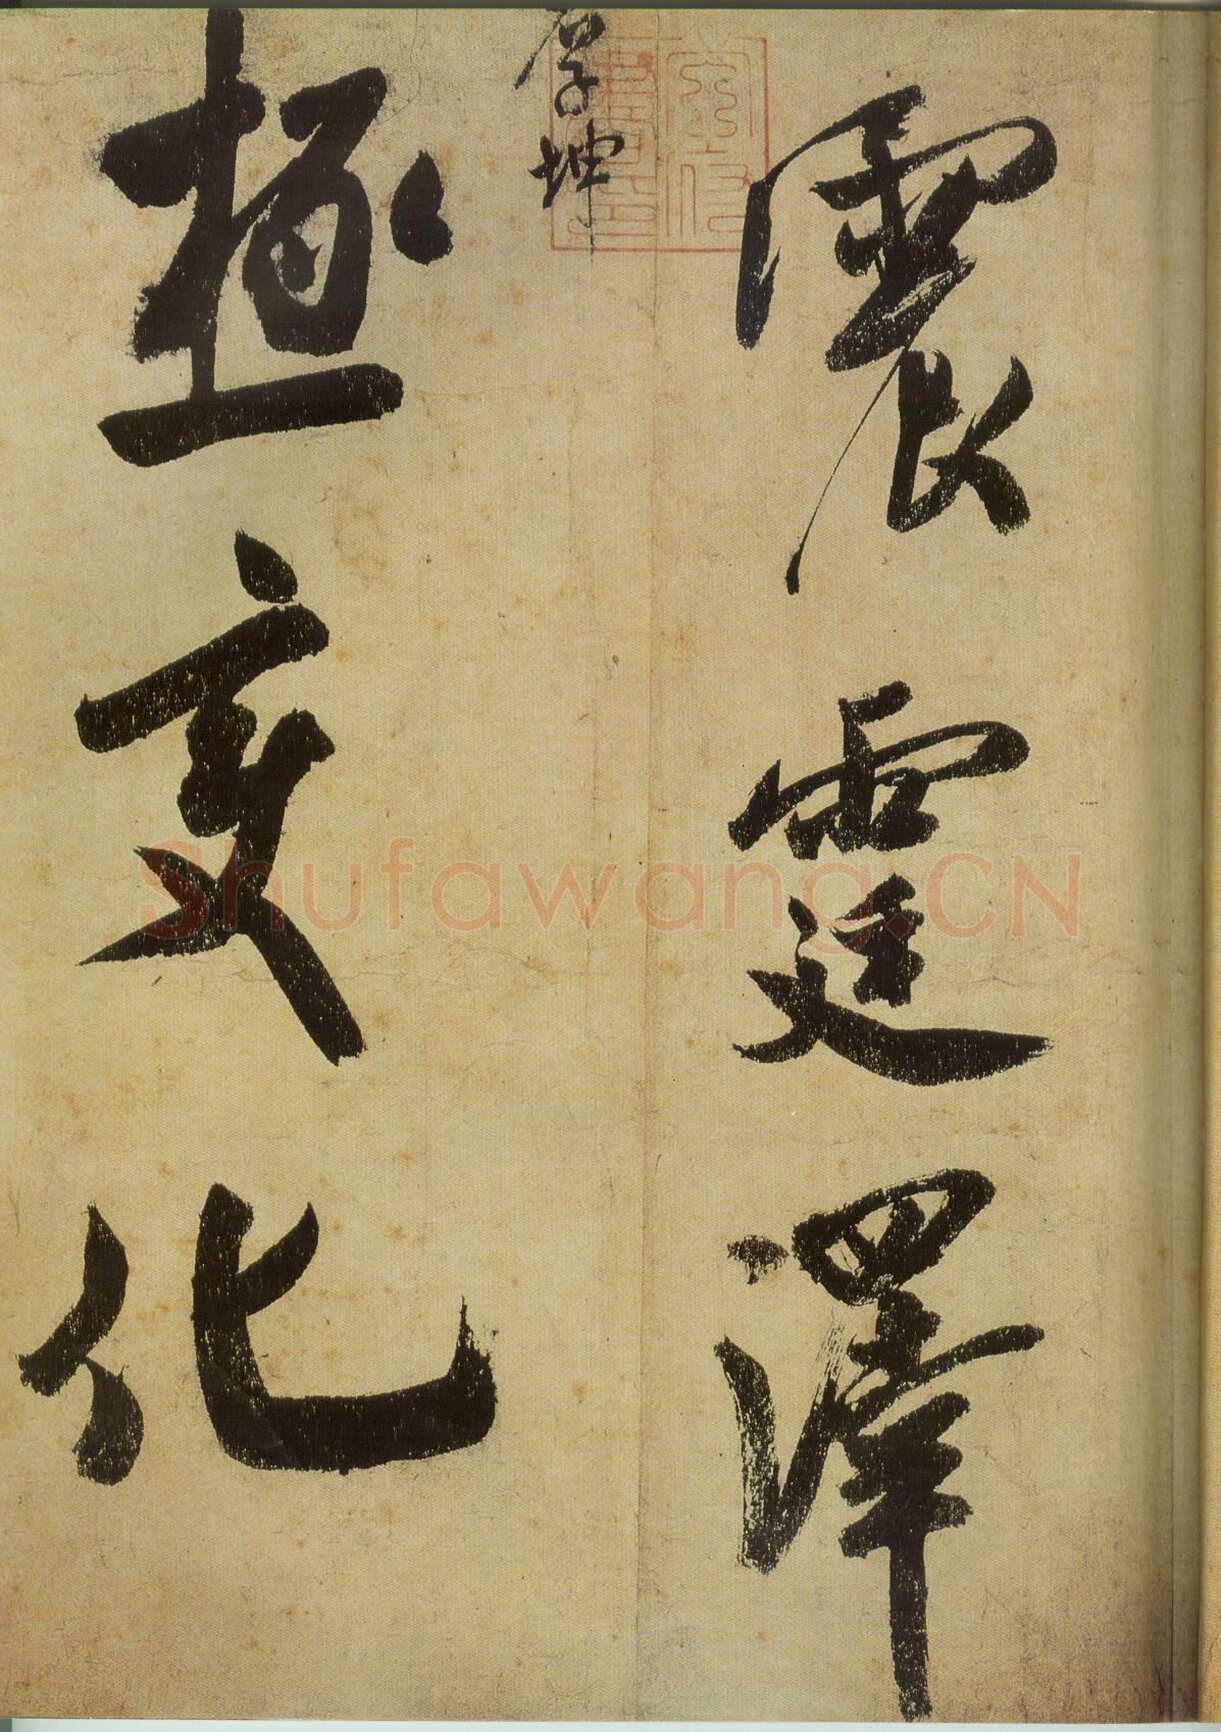 震霆澤
学坤
極变化
Shufawang.CN